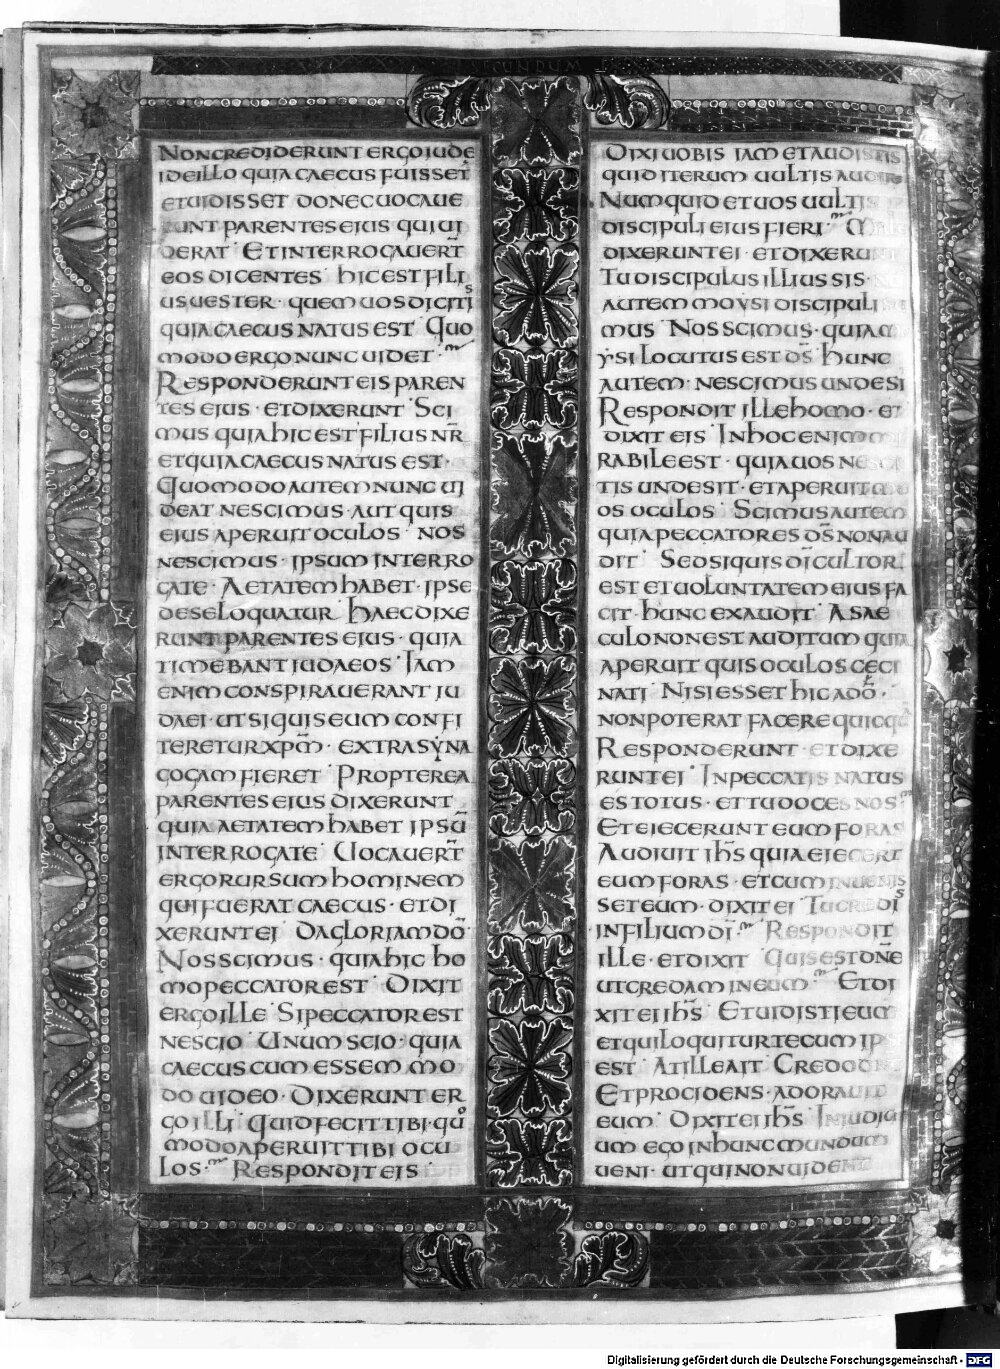 SECUNDUM
NONCREDIDERUNT ERGO IUDEI
DEILLO QUIA CAECUS FUISSET
ETUIDISSET DONEC UOCAUE
RUNT PARENTES EIUS QUIUI
DERAT · ET INTERROGAUERT̄
EOS DICENTES · HIC EST FILI
US UESTER · QUEM UOS DICITIS
QUIA CAECUS NATUS EST · QUO
MODO ERGO NUNC UIDET ·
RESPONDERUNT EIS PAREN
TES EIUS · ET DIXERUNT · SCI
MUS QUIA HIC EST FILIUS NR̄
ET QUIA CAECUS NATUS EST ·
QUOMODO AUTEM NUNC UI
DEAT NESCIMUS · AUT QUIS
EIUS APERUIT OCULOS · NOS
NESCIMUS · IPSUM INTERRO
GATE · AETATEM HABET · IPSE
DE SE LOQUATUR · HAEC DIXE
RUNT PARENTES EIUS · QUIA
TIMEBANT IUDAEOS · IAM
ENIM CONSPIRAUERANT IU
DAEI · UT SI QUIS EUM CONFI
TERETUR XPM̄ · EXTRA SYNA
GOGAM FIERET · PROPTEREA
PARENTES EIUS DIXERUNT
QUIA AETATEM HABET IPSŪ
INTERROGATE · UOCAUERT̄
ERGO RURSUM HOMINEM
QUI FUERAT CAECUS · ET DI
XERUNT EI · DA GLORIAM DŌ ·
NOS SCIMUS · QUIA HIC HO
MO PECCATOR EST · DIXIT
ERGO ILLE · SI PECCATOR EST
NESCIO · UNUM SCIO · QUIA
CAECUS CUM ESSEM MO
DO UIDEO · DIXERUNT ER
GO ILLI · QUID FECIT TIBI · QUO
MODO APERUIT TIBI OCU
LOS · RESPONDIT EIS ·
DIXI UOBIS IAM ET AUDISTIS
QUID ITERUM UULTIS
NUMQUID ET UOS UULTIS
DISCIPULI EIUS FIERI ·
DIXERUNT EI · ET DIXERUNT
TU DISCIPULUS ILLIUS SIS ·
AUTEM MOYSI DISCIPULI
MUS · NOS SCIMUS · QUIA
YSI LOCUTUS EST DS̄ · HUNC
AUTEM · NESCIMUS UNDE SI
RESPONDIT ILLE HOMO · ET
DIXIT EIS · IN HOC ENIM
RABILE EST · QUIA UOS
TIS UNDE SIT · ET APERUIT
OS OCULOS · SCIMUS AUTEM
QUIA PECCATORES DS̄ NON AU
DIT · SED SI QUIS DĪ CULTOR
EST ET UOLUNTATEM EIUS FA
CIT · HUNC EXAUDIT · A SAE
CULO NON EST AUDITUM QUIA
APERUIT QUIS OCULOS CĘCI
NATI · NISI ESSET HIC A DŌ ·
NON POTERAT FACERE
RESPONDERUNT · ET DIXE
RUNT EI · IN PECCATIS NATUS
ES TOTUS · ET TU DOCES NOS ·
ET EIECERUNT EUM FORAS
AUDIUIT IHS̄ QUIA EIECERT̄
EUM FORAS · ET CUM INUENIS
SET EUM · DIXIT EI · TU CREDIS
IN FILIUM DĪ · RESPONDIT
ILLE · ET DIXIT · QUIS EST DŌNE
UT CREDAM IN EUM · ET DI
XIT EI IHS̄ · ET UIDISTI EUM
ET QUI LOQUITUR TECUM IP
EST · AT ILLE AIT · CREDO
ET PROCIDENS · ADORAUIT
EUM · DIXIT EI IHS̄ · IN IUDICI
UM EGO IN HUNC MUNDUM
UENI · UT QUI NON UIDENT
Digitalisierung gefördert durch die Deutsche Forschungsgemeinschaft - DFG